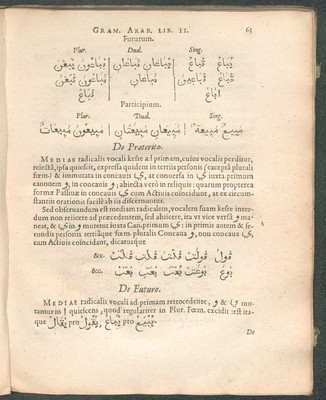 GRAM. ARAB. LIB. II. 63
Futurum.
Plur. Dual. Sing.
يُبَاعُ تُبَاعُ | يُبَاعَانِ تُبَاعَانِ | يُبَاعُونَ يُبَعْنَ
تُبَاعُ تُبَاعِينَ | تُبَاعَانِ | تُبَاعُونَ تُبَعْنَ
أُبَاعُ | نُبَاعُ
Participium.
Plur. Dual. Sing.
مَبِيعٌ مَبِيعَةٌ | مَبِيعَانِ مَبِيعَتَانِ | مَبِيعُونَ مَبِيعَاتٌ
De Præterito.
MEDIAE radicalis vocali kesræ ad primam, cujus vocalis perditur,
rejectâ, ipsa quiescit, expressa quidem in tertiis personis (exceptâ plurali
fœm.) & immutata in concavis ي, at conversa in ي juxta primum
canonem و, in concavis و; abjecta verò in reliquis: quarum propterea
formæ Passivæ in concavis ي cum Activis coïncidunt, at ex circum-
stantiis orationis facilè ab iis discernuntur.
Sed observandum est mediam radicalem, vocalem suam kesre inter-
dum non reiicere ad præcedentem, sed abiicere, ita ut vice versâ و ma-
neat, & ي in و mutetur juxta Can. primum ي: in primis autem & se-
cundis personis tertiâque fœm. pluralis Concava و, non concava ي
cum Activis coïncidant, dicaturque
قُولَ قُولَتْ قُلْتَ قُلْتِ قُلْتُ &c.
بُوعَ بُوعَتْ بُعْتَ بُعْتِ بُعْتُ &c.
De Futuro.
MEDIAE radicalis vocali ad primam retrocedente, و & ي mu-
tantur in ا quiescens, quod regulariter in Plur. Fœm. excidit: est ita-
que يُقَالُ pro يُقْوَلُ, يُبَاعُ pro يُبْيَعُ.
De